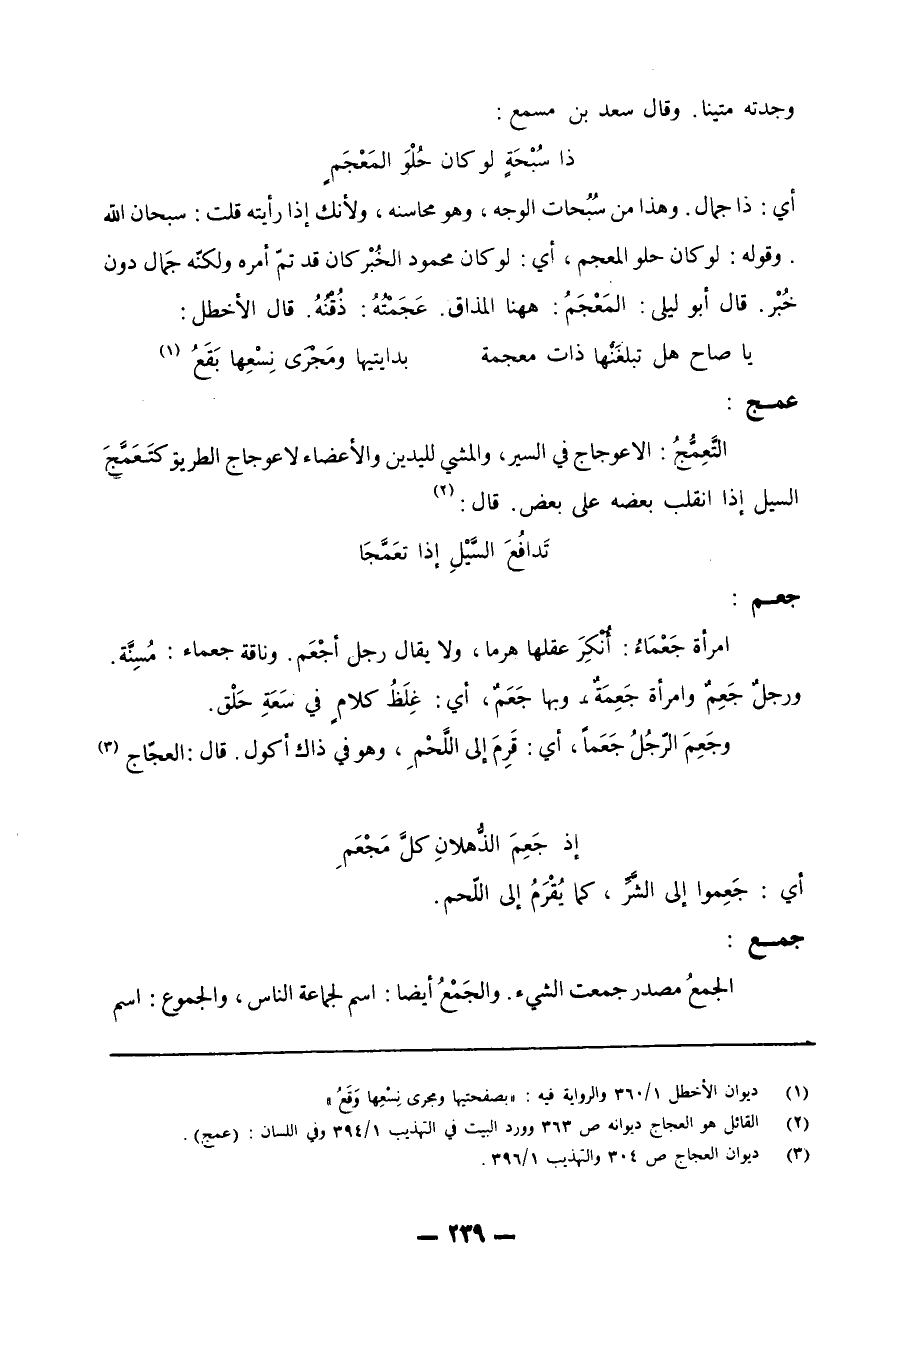 وجدته متينا. وقال سعد بن مسمع :
ذا سُبْحَةٍ لو كان حُلْوَ المَعْجَمِ
أي : ذا جمال. وهذا من سُبُحات الوجه، وهو محاسنه، ولأنك إذا رأيته قلت : سبحان الله
. وقوله : لو كان حلو المعجم، أي : لو كان محمود الخُبْر كان قد تمّ أمره ولكنّه جَمال دون
خُبْر. قال أبو ليلى : المَعْجَمُ : ههنا المذاق. عَجَمْتُهُ : ذُقْتُهُ. قال الأخطل :
يا صاح هل تبلغَنْها ذات معجمة    بدايتيها ومَجْرَى نِسْعِها بَقَعُ (١)
عمـج :
التَّعمُّجُ : الاعوجاج في السير، والمشي لليدين والأعضاء لاعوجاج الطريق كَتَعَمَّجَ
السيل إذا انقلب بعضه على بعض. قال : (٢)
تَدافُعَ السَّيْلِ إذا تعَمَّجَا
جعـم :
امرأة جَعْمَاءُ : أُنْكِرَ عقلها هرما، ولا يقال رجل أجْعَم. وناقة جعماء : مُسِنَّة.
ورجلٌ جَعِمٌ وامرأة جَعِمَةٌ، وبها جَعَمٌ، أي : غِلَظُ كلامٍ في سَعَةِ حَلْق.
وجَعِمَ الرّجُلُ جَعَماً، أي : قَرِمَ إلى اللَّحْمِ، وهو في ذاك أكول. قال : العجّاج (٣)
إذ جَعِمَ الذُّهلانِ كلَّ مَجْعَمِ
أي : جَعِموا إلى الشرِّ، كما يُقْرَمُ إلى اللّحم.
جمـع :
الجمعُ مصدر جمعت الشيء. والجَمْعُ أيضا : اسم لجماعة الناس، والجموع : اسم
(١) ديوان الأخطل ٣٦٠/١ والرواية فيه : «بصفحتيها ومجرى نِسْعِها وَقَعُ»
(٢) القائل هو العجاج ديوانه ص ٣٦٣ وورد البيت في التهذيب ٣٩٤/١ وفي اللسان : (عمج).
(٣) ديوان العجاج ص ٣٠٤ والتهذيب ٣٩٦/١.
— ٢٣٩ —